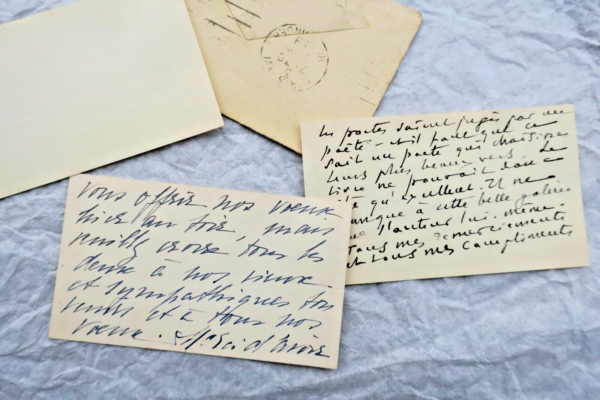 vous offrir nos vœux
hier au soir, mais
veuillez croire tous les
deux à nos vieux
et sympathiques sou
venirs et à tous nos
vœux.
Les poètes soient jugés par un
poète - et il faut que ce
soit un poète qui choisisse
leurs plus beaux vers. Le
livre ne pouvait donc
qu'excellent. Il ne
manque à cette belle galerie
que l'auteur lui-même.
Tous mes remerciements
et tous mes compliments